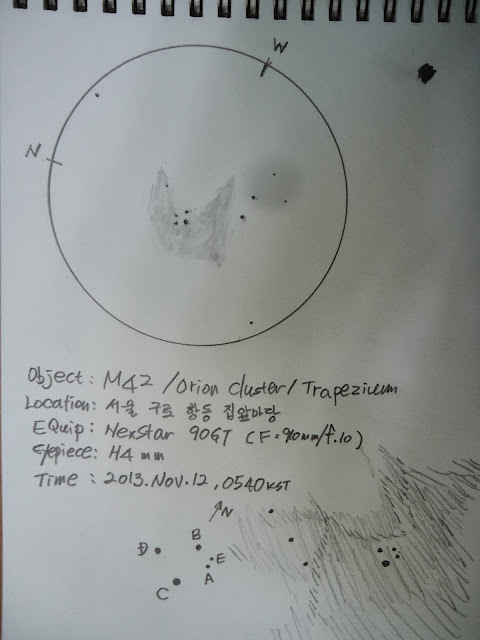 W
N
Object: M42 /Orion cluster/ Trapezium
Location: 서울 구로 항동 집앞마당
EQuip: NexStar 90GT (F=910mm/f.10)
Eyepiece: H4mm
Time : 2013.Nov.12, 0540KST
N
B
D
E
A
C